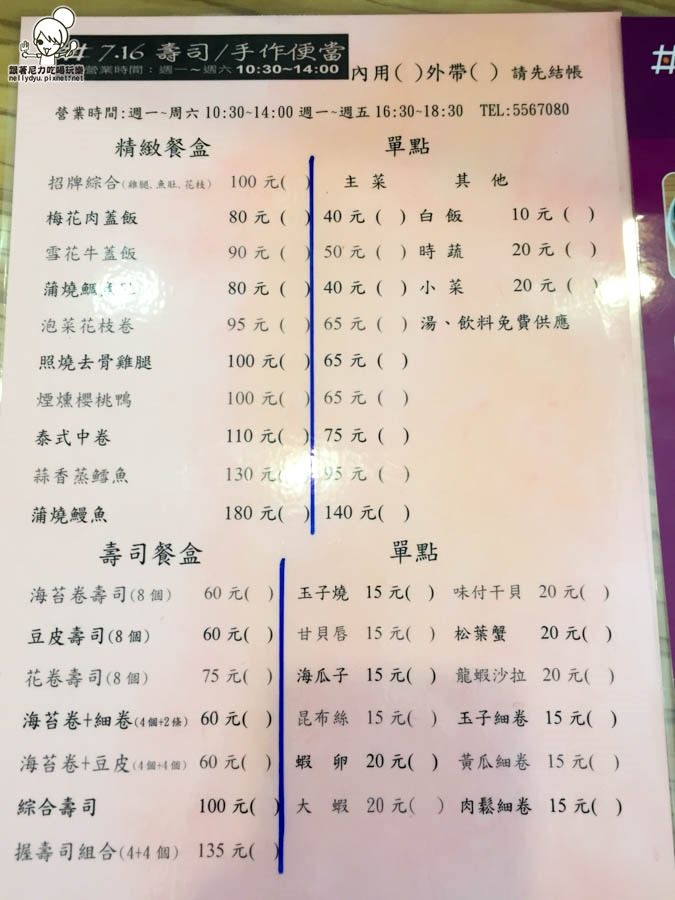 跟著尼力吃喝玩樂
nellydyu.pixnet.net
# 7.16 壽司/手作便當
營業時間：週一~週六 10:30~14:00
內用( )外帶( ) 請先結帳
營業時間:週一~周六 10:30~14:00 週一~週五 16:30~18:30 TEL:5567080
精緻餐盒 單點
招牌綜合(雞腿、魚肚、花枝) 100 元( ) 主 菜 其 他
梅花肉蓋飯 80 元 ( ) 40 元 ( ) 白 飯 10 元 ( )
雪花牛蓋飯 90 元 ( ) 50 元 ( ) 時 蔬 20 元 ( )
蒲燒鯛 80 元 ( ) 40 元 ( ) 小 菜 20 元 ( )
泡菜花枝卷 95 元 ( ) 65 元 ( ) 湯、飲料免費供應
照燒去骨雞腿 100 元( ) 65 元 ( )
煙燻櫻桃鴨 100 元( ) 65 元 ( )
泰式中卷 110 元( ) 75 元 ( )
蒜香蒸鱈魚 130 元( ) 95 元 ( )
蒲燒鰻魚 180 元( ) 140 元( )
壽司餐盒 單點
海苔卷壽司(8 個) 60 元( ) 玉子燒 15 元( ) 味付干貝 20 元( )
豆皮壽司(8 個) 60 元( ) 甘貝唇 15 元( ) 松葉蟹 20 元( )
花卷壽司(8 個) 75 元( ) 海瓜子 15 元( ) 龍蝦沙拉 20 元( )
海苔卷+細卷(4 個+2 條) 60 元( ) 昆布絲 15 元( ) 玉子細卷 15 元( )
海苔卷+豆皮(4 個+4 個) 60 元( ) 蝦 卵 20 元( ) 黃瓜細卷 15 元( )
綜合壽司 100 元( ) 大 蝦 20 元( ) 肉鬆細卷 15 元( )
握壽司組合(4+4 個) 135 元( )
#